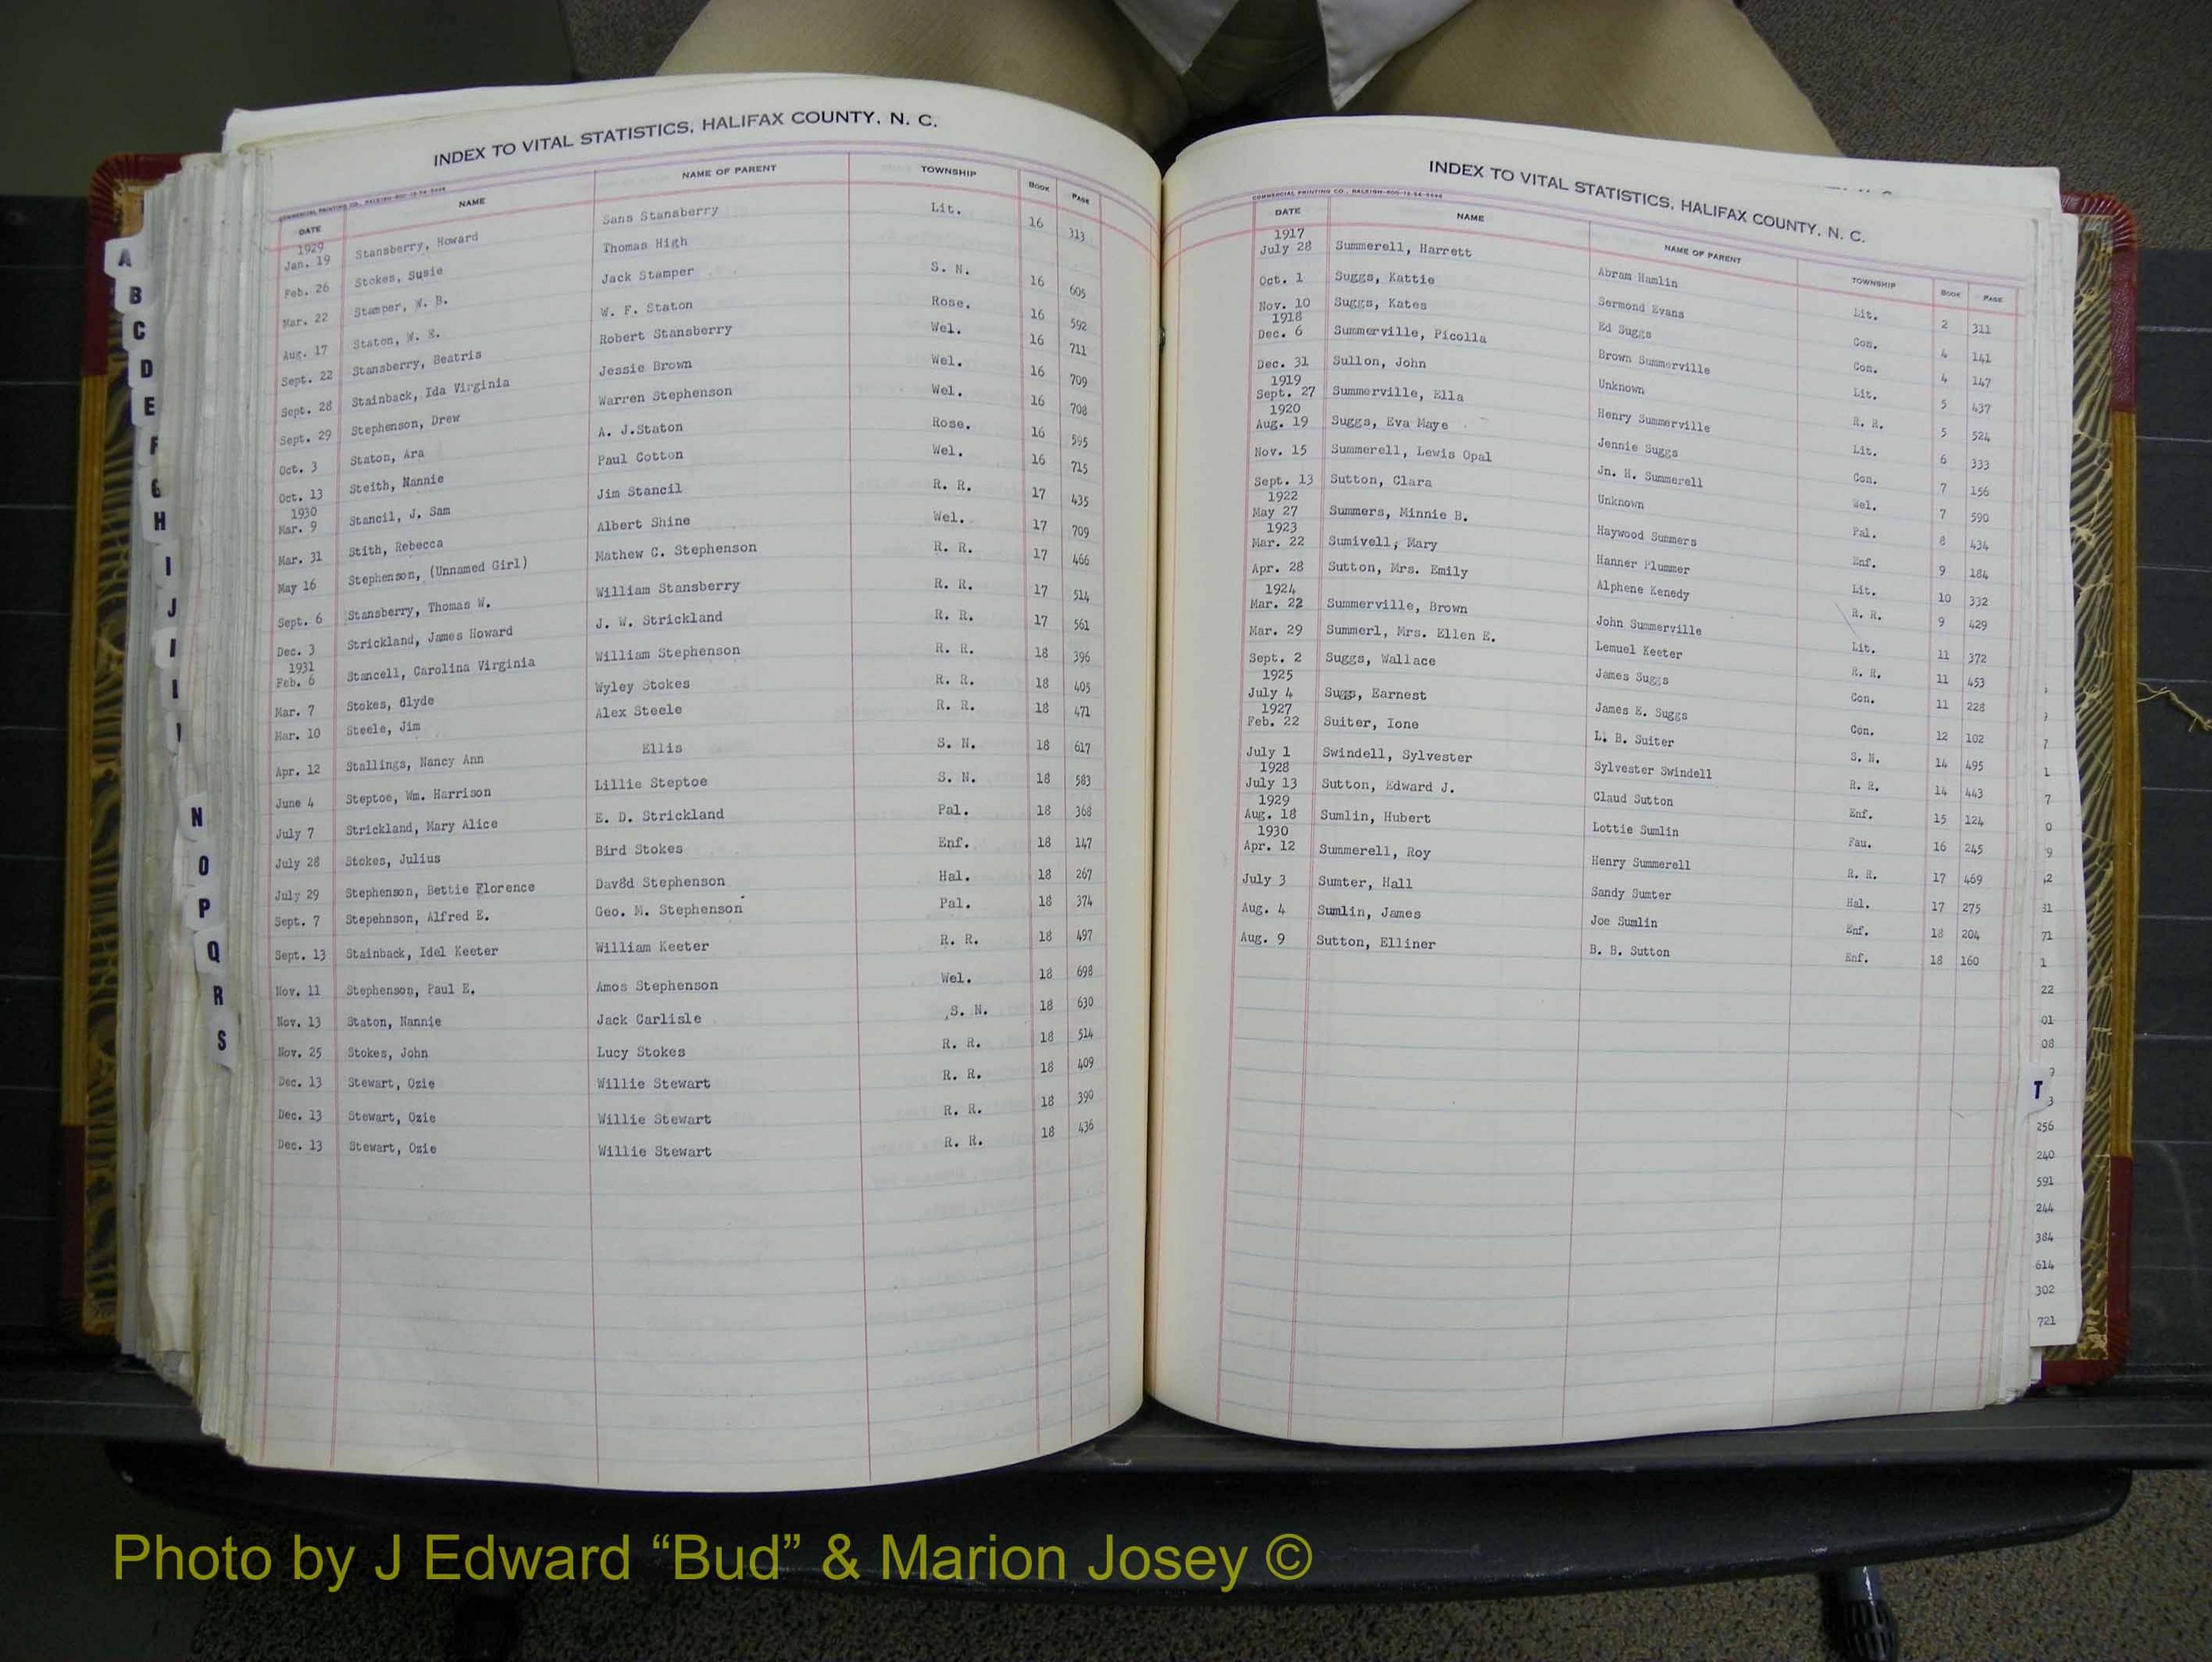 INDEX TO VITAL STATISTICS, HALIFAX COUNTY, N. C.
COMMERCIAL PRINTING CO., RALEIGH
DATE NAME NAME OF PARENT TOWNSHIP BOOK PAGE
1929
Jan. 19 Stansberry, Howard Sans Stansberry Lit. 16 313
Feb. 26 Stokes, Susie Thomas High
Mar. 22 Stamper, W. B. Jack Stamper S. N. 16 605
Aug. 17 Staton, W. E. W. F. Staton Rose. 16 592
Sept. 22 Stansberry, Beatris Robert Stansberry Wel. 16 711
Sept. 28 Stainback, Ida Virginia Jessie Brown Wel. 16 709
Sept. 29 Stephenson, Drew Warren Stephenson Wel. 16 708
Oct. 3 Staton, Ara A. J.Staton Rose. 16 595
Oct. 13 Steith, Nannie Paul Cotton Wel. 16 715
1930
Mar. 9 Stancil, J. Sam Jim Stancil R. R. 17 435
Mar. 31 Stith, Rebecca Albert Shine Wel. 17 709
May 16 Stephenson, (Unnamed Girl) Mathew C. Stephenson R. R. 17 466
Sept. 6 Stansberry, Thomas W. William Stansberry R. R. 17 514
Dec. 3 Strickland, James Howard J. W. Strickland R. R. 17 561
1931
Feb. 6 Stancell, Carolina Virginia William Stephenson R. R. 18 396
Mar. 7 Stokes, Clyde Wyley Stokes R. R. 18 405
Mar. 10 Steele, Jim Alex Steele R. R. 18 471
Apr. 12 Stallings, Nancy Ann Ellis S. N. 18 617
June 4 Steptoe, Wm. Harrison Lillie Steptoe S. N. 18 583
July 7 Strickland, Mary Alice E. D. Strickland Pal. 18 368
July 28 Stokes, Julius Bird Stokes Enf. 18 147
July 29 Stephenson, Bettie Florence Dav8d Stephenson Hal. 18 267
Sept. 7 Stepehnson, Alfred E. Geo. M. Stephenson Pal. 18 374
Sept. 13 Stainback, Idel Keeter William Keeter R. R. 18 497
Nov. 11 Stephenson, Paul E. Amos Stephenson Wel. 18 698
Nov. 13 Staton, Nannie Jack Carlisle S. N. 18 630
Nov. 25 Stokes, John Lucy Stokes R. R. 18 514
Dec. 13 Stewart, Ozie Willie Stewart R. R. 18 409
Dec. 13 Stewart, Ozie Willie Stewart R. R. 18 390
Dec. 13 Stewart, Ozie Willie Stewart R. R. 18 436
A
B
C
D
E
F
G
H
I
J
N
O
P
Q
R
S
INDEX TO VITAL STATISTICS, HALIFAX COUNTY, N. C.
COMMERCIAL PRINTING CO., RALEIGH
DATE NAME NAME OF PARENT TOWNSHIP BOOK PAGE
1917
July 28 Summerell, Harrett Abram Hamlin Lit. 2 311
Oct. 1 Suggs, Kattie Sermond Evans Con. 4 141
Nov. 10 Suggs, Kates Ed Suggs Con. 4 147
1918
Dec. 6 Summerville, Picolla Brown Summerville Lit. 5 437
Dec. 31 Sullon, John Unknown R. R. 5 524
1919
Sept. 27 Summerville, Ella Henry Summerville Lit. 6 333
1920
Aug. 19 Suggs, Eva Maye Jennie Suggs Con. 7 156
Nov. 15 Summerell, Lewis Opal Jn. H. Summerell Wel. 7 590
Sept. 13 Sutton, Clara Unknown Pal. 8 434
1922
May 27 Summers, Minnie B. Haywood Summers Enf. 9 184
1923
Mar. 22 Sumivell, Mary Hanner Plummer Lit. 10 332
Apr. 28 Sutton, Mrs. Emily Alphene Kenedy R. R. 9 429
1924
Mar. 22 Summerville, Brown John Summerville Lit. 11 372
Mar. 29 Summerl, Mrs. Ellen E. Lemuel Keeter R. R. 11 453
Sept. 2 Suggs, Wallace James Suggs Con. 11 228
1925
July 4 Suggs, Earnest James E. Suggs Con. 12 102
1927
Feb. 22 Suiter, Ione L. B. Suiter S. N. 14 495
July 1 Swindell, Sylvester Sylvester Swindell R. R. 14 443
1928
July 13 Sutton, Edward J. Claud Sutton Enf. 15 124
1929
Aug. 18 Sumlin, Hubert Lottie Sumlin Fau. 16 245
1930
Apr. 12 Summerell, Roy Henry Summerell R. R. 17 469
July 3 Sumter, Hall Sandy Sumter Hal. 17 275
Aug. 4 Sumlin, James Joe Sumlin Enf. 18 204
Aug. 9 Sutton, Elliner B. B. Sutton Enf. 18 160
7
1
7
0
9
2
31
71
1
22
01
08
T
3
256
240
591
244
384
614
302
721
Photo by J Edward “Bud” & Marion Josey ©